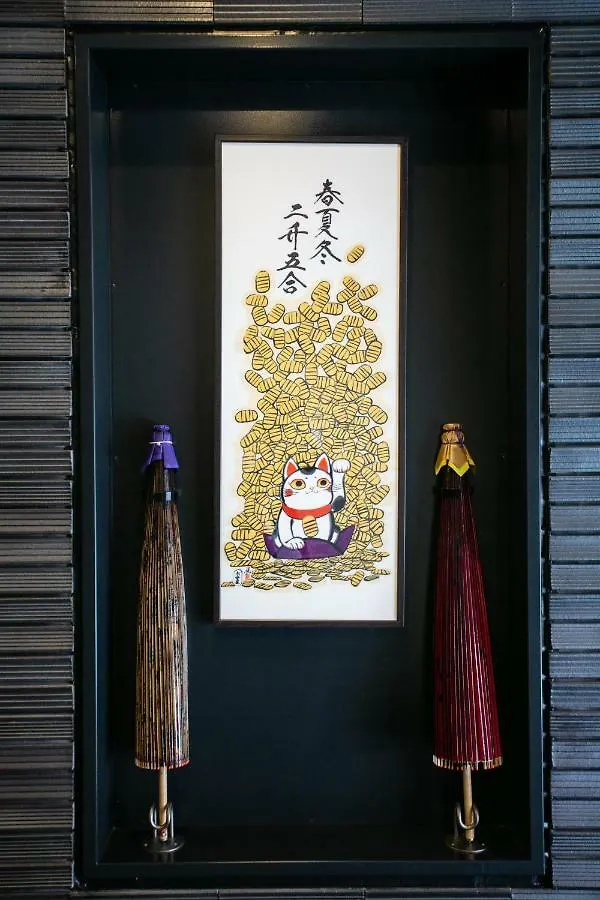 春夏冬
二升五合